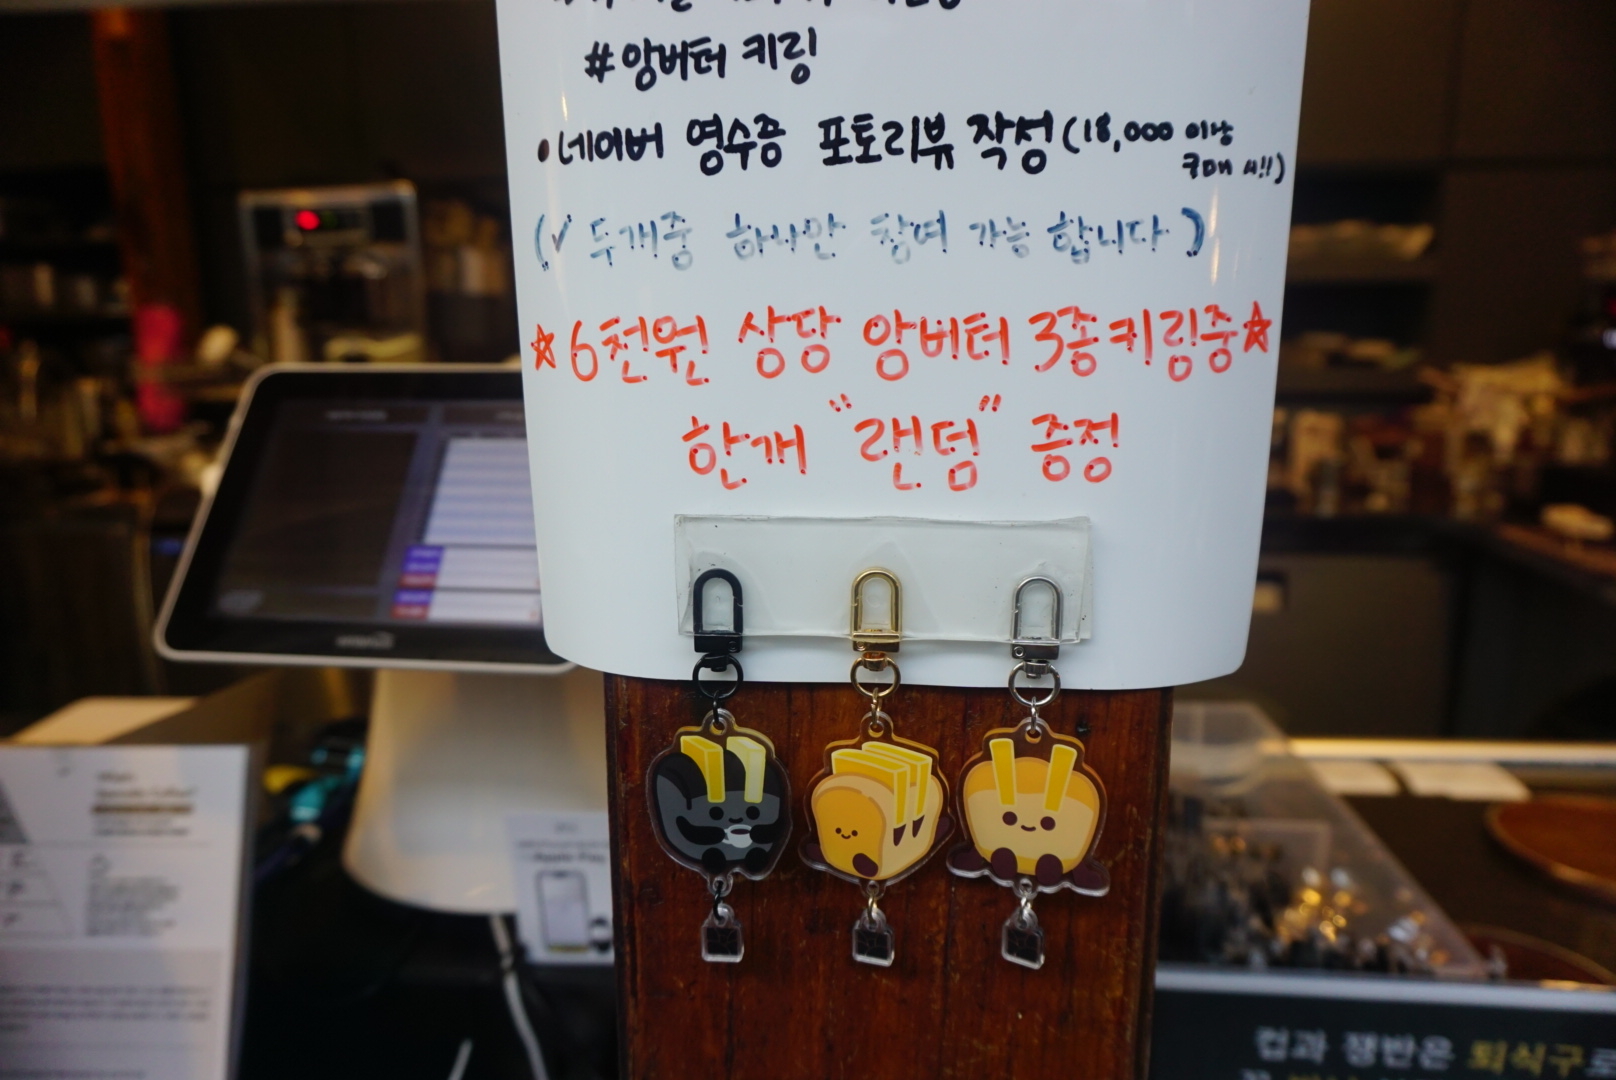 #앙버터 키링
•네이버 영수증 포토리뷰 작성(18,000 이상
구매 시!!)
(✓ 두개중 하나만 참여 가능 합니다)
☆6천원 상당 앙버터 3종키링중☆
한개 "랜덤" 증정
Apple Pay
컵과 쟁반은 퇴식구로